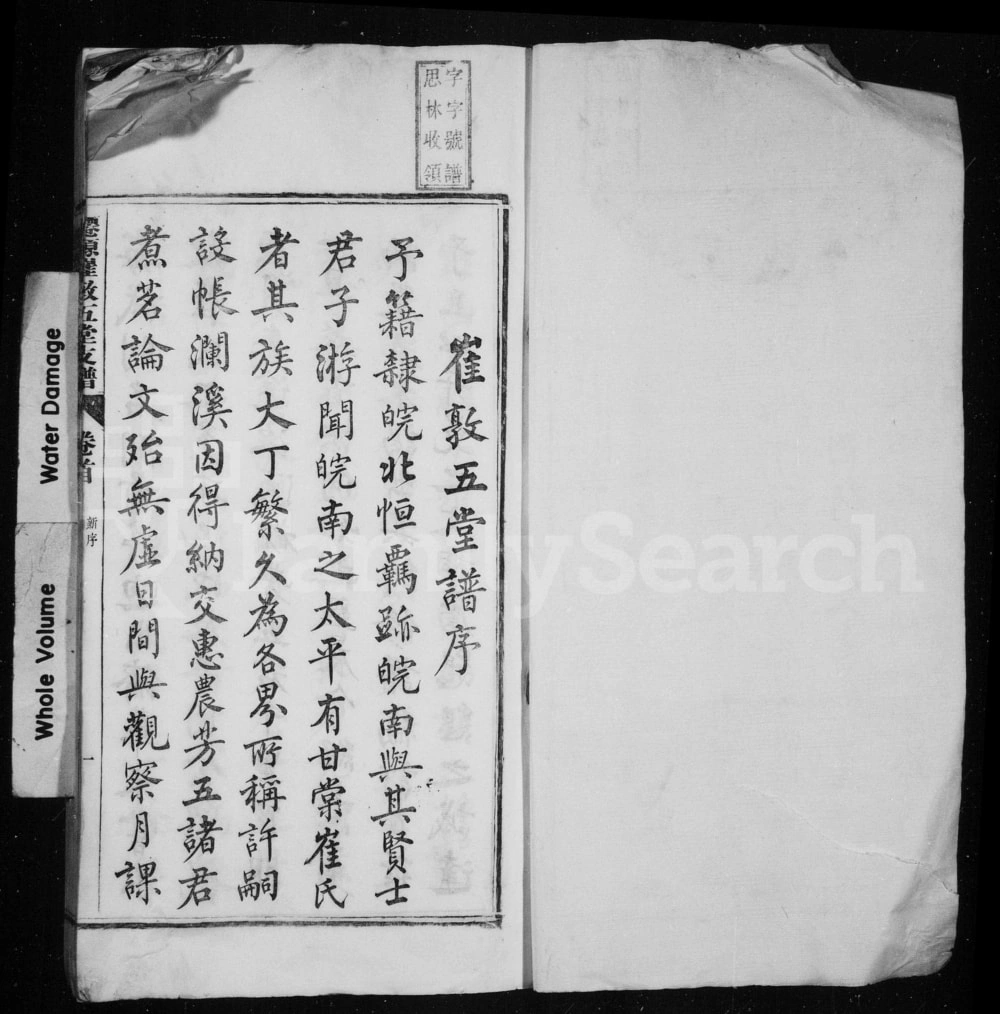 字字號譜
思林收領
崔敦五堂譜序
予籍隸皖北恒羈跡皖南與其賢士
君子游聞皖南之太平有甘棠崔氏
者其族大丁繁久為各界所稱許嗣
設帳瀾溪因得納交惠農芳五諸君
煮茗論文殆無虛日間與觀察月課
崔敦五堂支譜
卷首
新序
一
Water Damage
Whole Volume
FamilySearch